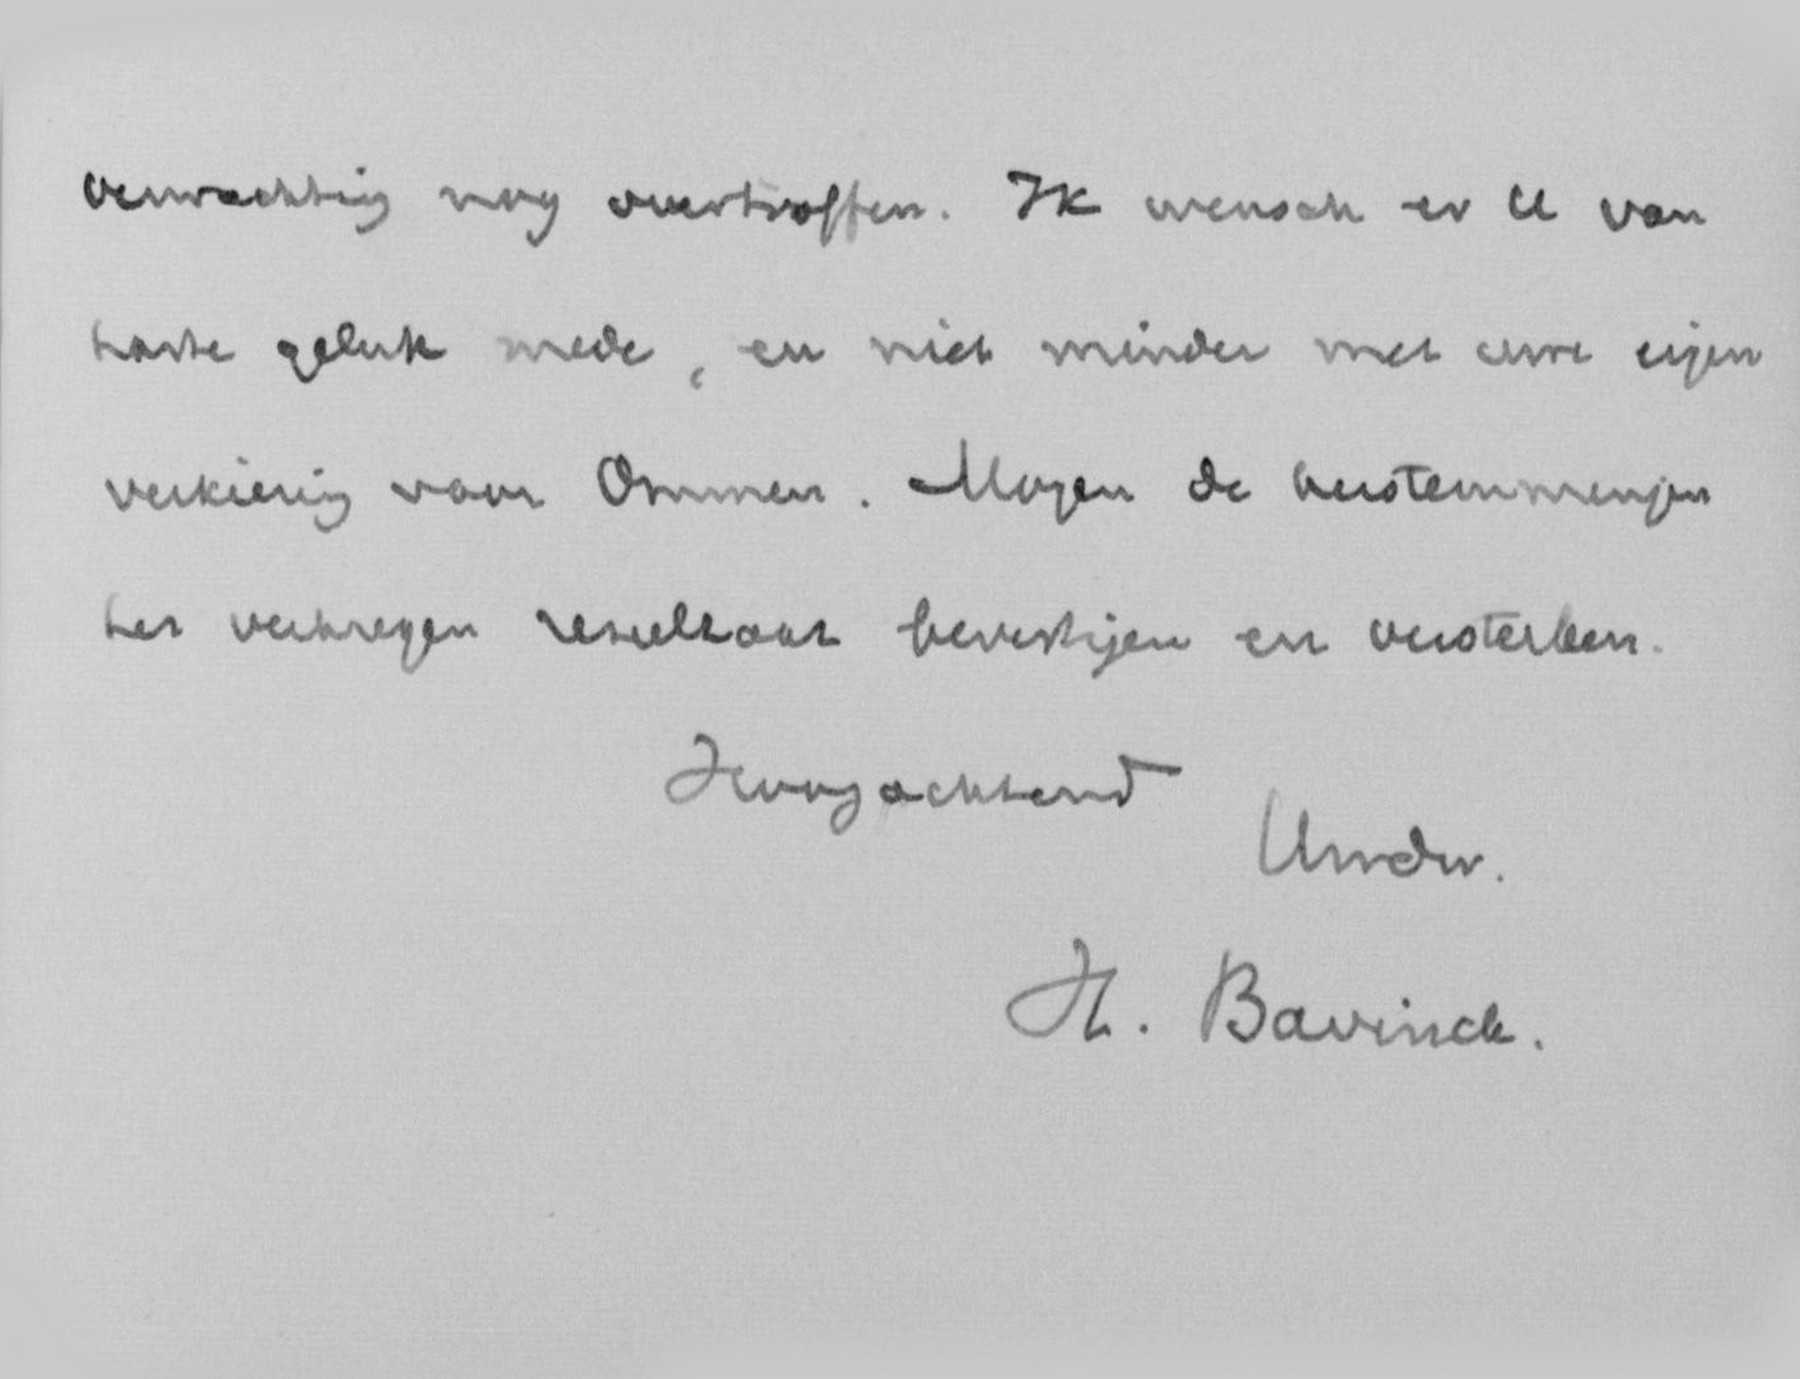 verwachting nog overtroffen. Ik wensch er U van
harte geluk mede, en niet minder met uwe eigen
verkiezing voor Ommen. Mogen de herstemmingen
het verkregen resultaat bevestigen en versterken.
Hoogachtend
Uwdw.
H. Bavinck.